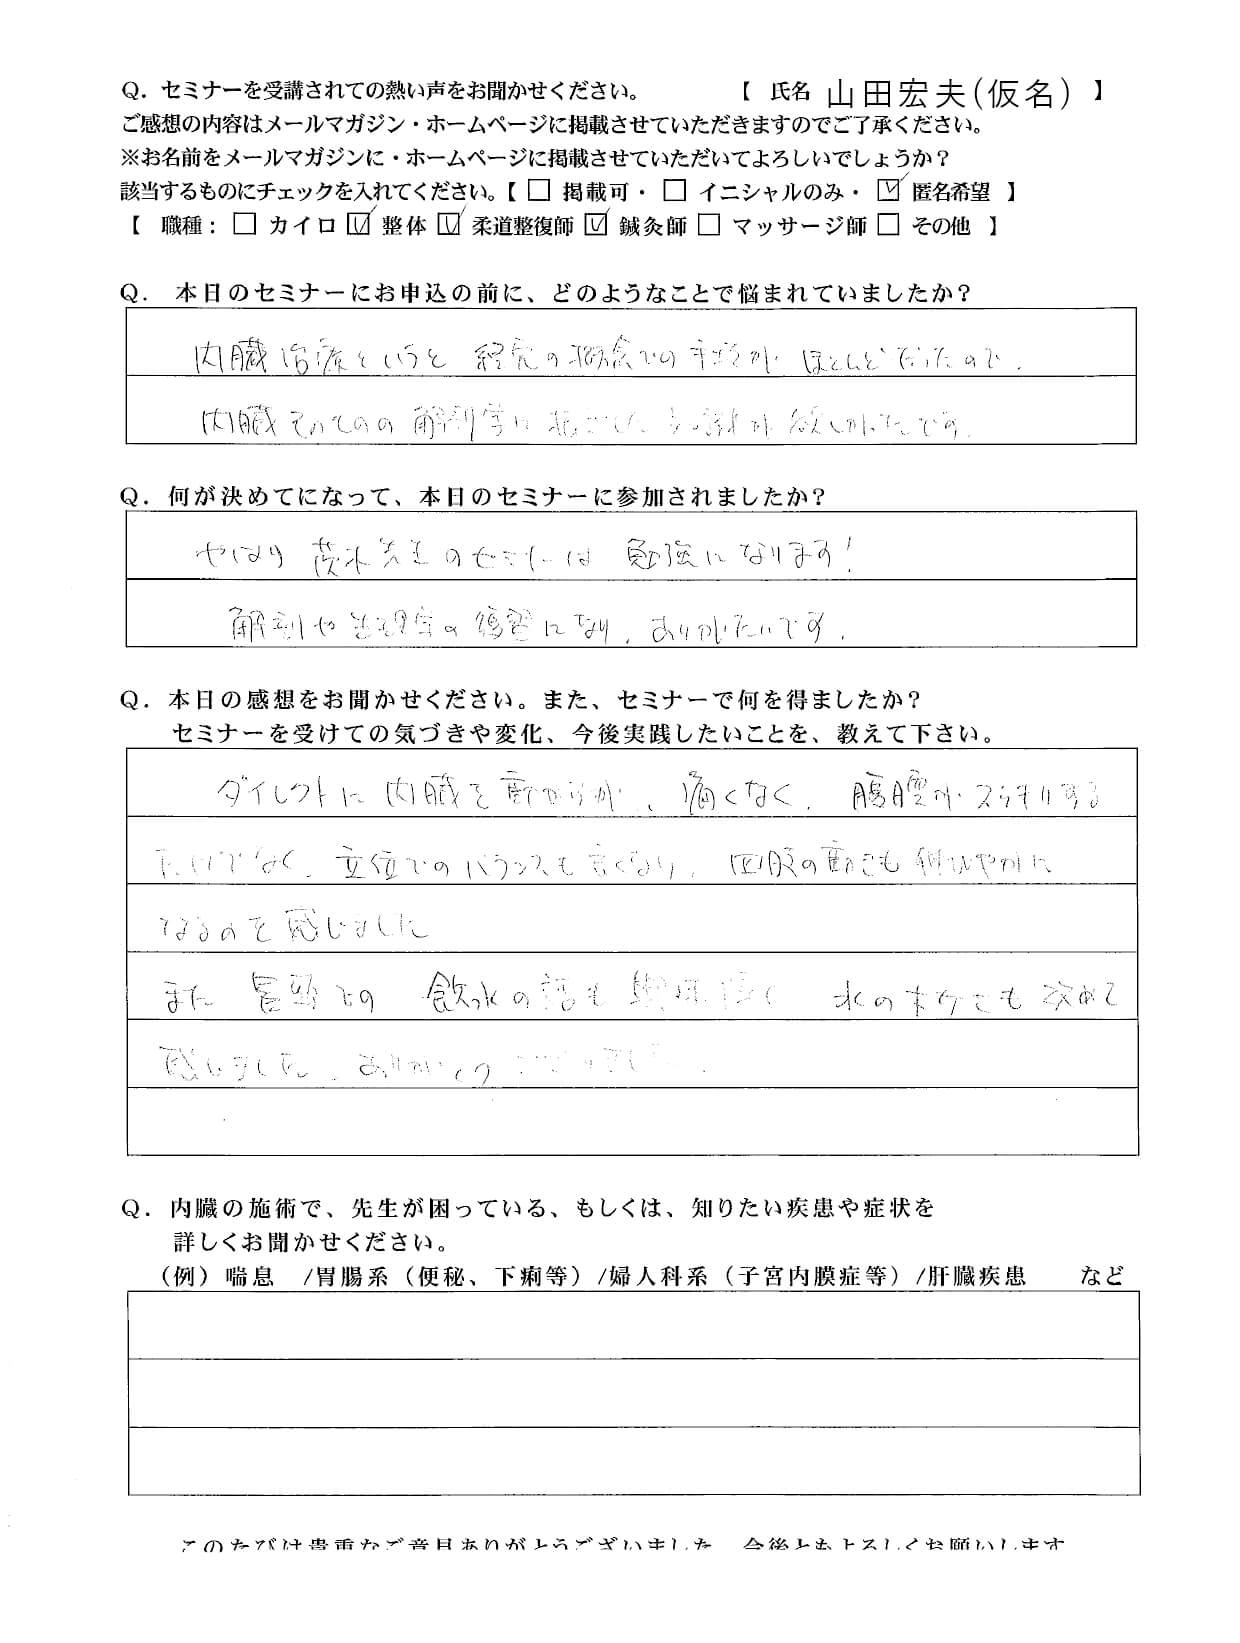 Q. セミナーを受講されての熱い声をお聞かせください。 【 氏名 山田宏夫(仮名) 】
ご感想の内容はメールマガジン・ホームページに掲載させていただきますのでご了承ください。
※お名前をメールマガジンに・ホームページに掲載させていただいてよろしいでしょうか？
該当するものにチェックを入れてください。【 □ 掲載可・ □ イニシャルのみ・ ☑ 匿名希望 】
【 職種： □ カイロ ☑ 整体 ☑ 柔道整復師 ☑ 鍼灸師 □ マッサージ師 □ その他 】
Q. 本日のセミナーにお申込の前に、どのようなことで悩まれていましたか？
内臓治療というと 経穴の概念での手技が ほとんどだったので、
内臓そのものの 解剖学に 根ざした 知識が 欲しかったです。
Q. 何が決めてになって、本日のセミナーに参加されましたか？
やはり 茂木先生のセミナーは 勉強になります！
解剖や生理学の復習になり、ありがたいです。
Q. 本日の感想をお聞かせください。また、セミナーで何を得ましたか？
セミナーを受けての気づきや変化、今後実践したいことを、教えて下さい。
ダイレクトに 内臓を動かすが、痛くなく、腹腔が スッキリする
だけでなく、立位でのバランスも 良くなり、四肢の動きも 伸びやかに
なるのを 感じました
また 冒頭での 飲水の話も 興味深く 水の大切さも 改めて
感じました。ありがとうございました。
Q. 内臓の施術で、先生が困っている、もしくは、知りたい疾患や症状を
詳しくお聞かせください。
（例）喘息 /胃腸系（便秘、下痢等）/婦人科系（子宮内膜症等）/肝臓疾患 など
このたびは貴重なご意見ありがとうございました。今後ともよろしくお願いします